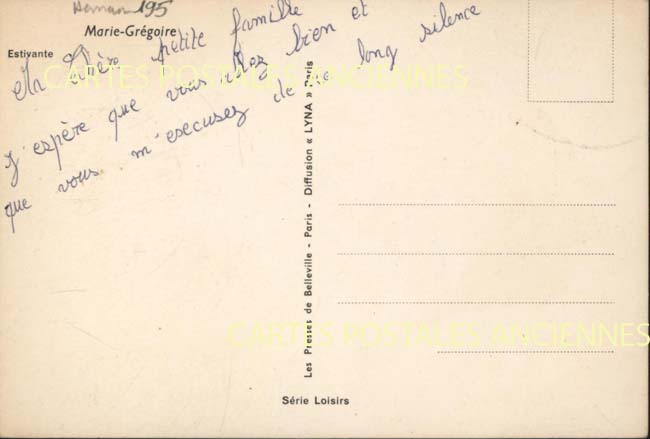 195
Marie-Grégoire
Estivante
petite famille
j'espère que vous allez bien et
que vous m'escusez de ce long silence
CARTES POSTALES ANCIENNES
Les Presses de Belleville - Paris - Diffusion « LYNA » Paris
CARTES POSTALES ANCIENNES
Série Loisirs